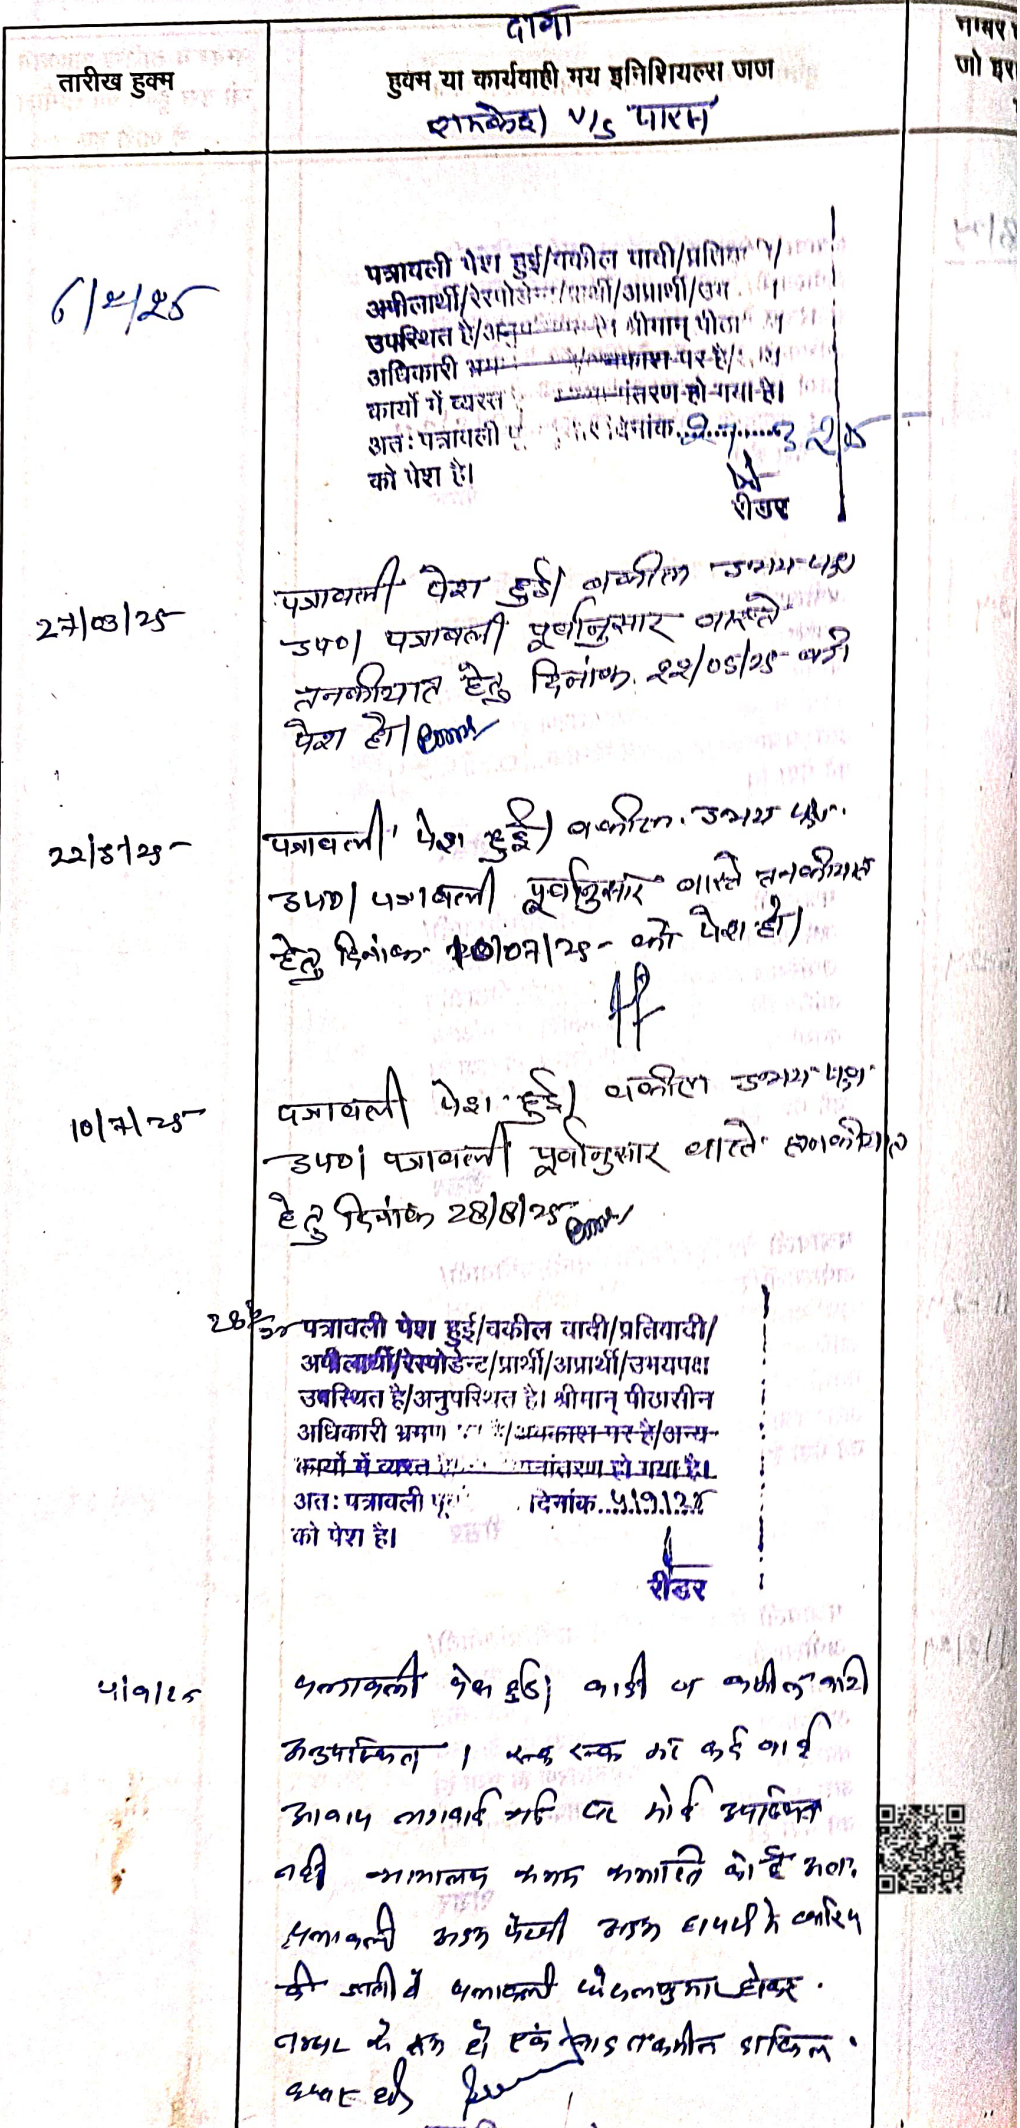 दावा
तारीख हुक्म
हुक्म या कार्यवाही मय इनिशियल्स जज
नम्बर
जो इस
रामकेश v/s पारस
6/2/25
पत्रावली पेश हुई/वकील वादी/प्रतिवा
अपीलार्थी/रेस्पोडेन्ट/प्रार्थी/अप्रार्थी/उभ
उपस्थित है/अनुप श्रीमान् पीठा
अधिकारी भ्रम वकाश पर है/
कार्यो में व्यस्त नांतरण हो गया है।
अतः पत्रावली दिनांक 27 3 2025
को पेश है।
रीडर
27/03/25
पत्रावली पेश हुई। वकील उभय पक्ष
उप0। पत्रावली पूर्वानुसार वास्ते
तनकीयात हेतु दिनांक 22/05/25 को
पेश हो।
22/5/25
पत्रावली पेश हुई। वकील उभय पक्ष
उप0। पत्रावली पूर्वानुसार वास्ते तनकीयात
हेतु दिनांक 10/07/25 को पेश हो।
10/7/25
पत्रावली पेश हुई। वकील उभय पक्ष
उप0। पत्रावली पूर्वानुसार वास्ते तनकीयात
हेतु दिनांक 28/8/25
28/8/25 पत्रावली पेश हुई/वकील वादी/प्रतिवादी/
अपीलार्थी/रेस्पोडेन्ट/प्रार्थी/अप्रार्थी/उभयपक्ष
उपस्थित है/अनुपस्थित है। श्रीमान् पीठासीन
अधिकारी भ्रमण है/अवकाश पर है/अन्य
कार्यो में व्यस्त नांतरण हो गया है।
अतः पत्रावली पूर्व दिनांक 4.9.25
को पेश है।
रीडर
4/9/25
पत्रावली पेश हुई। वादी व वकील वादी
अनुपस्थित। रूक रूक कर कई बार
आवाज लगवाई गई पर कोई उपस्थित
नही न्यायालय समय समाप्ति को है अतः
पत्रावली अदम पैरवी अदम हाजरी मे खारिज
की जाती है पत्रावली फैसलशुमार होकर
नम्बर से कम हो बाद तकमील दाखिल
दफ्तर हो।